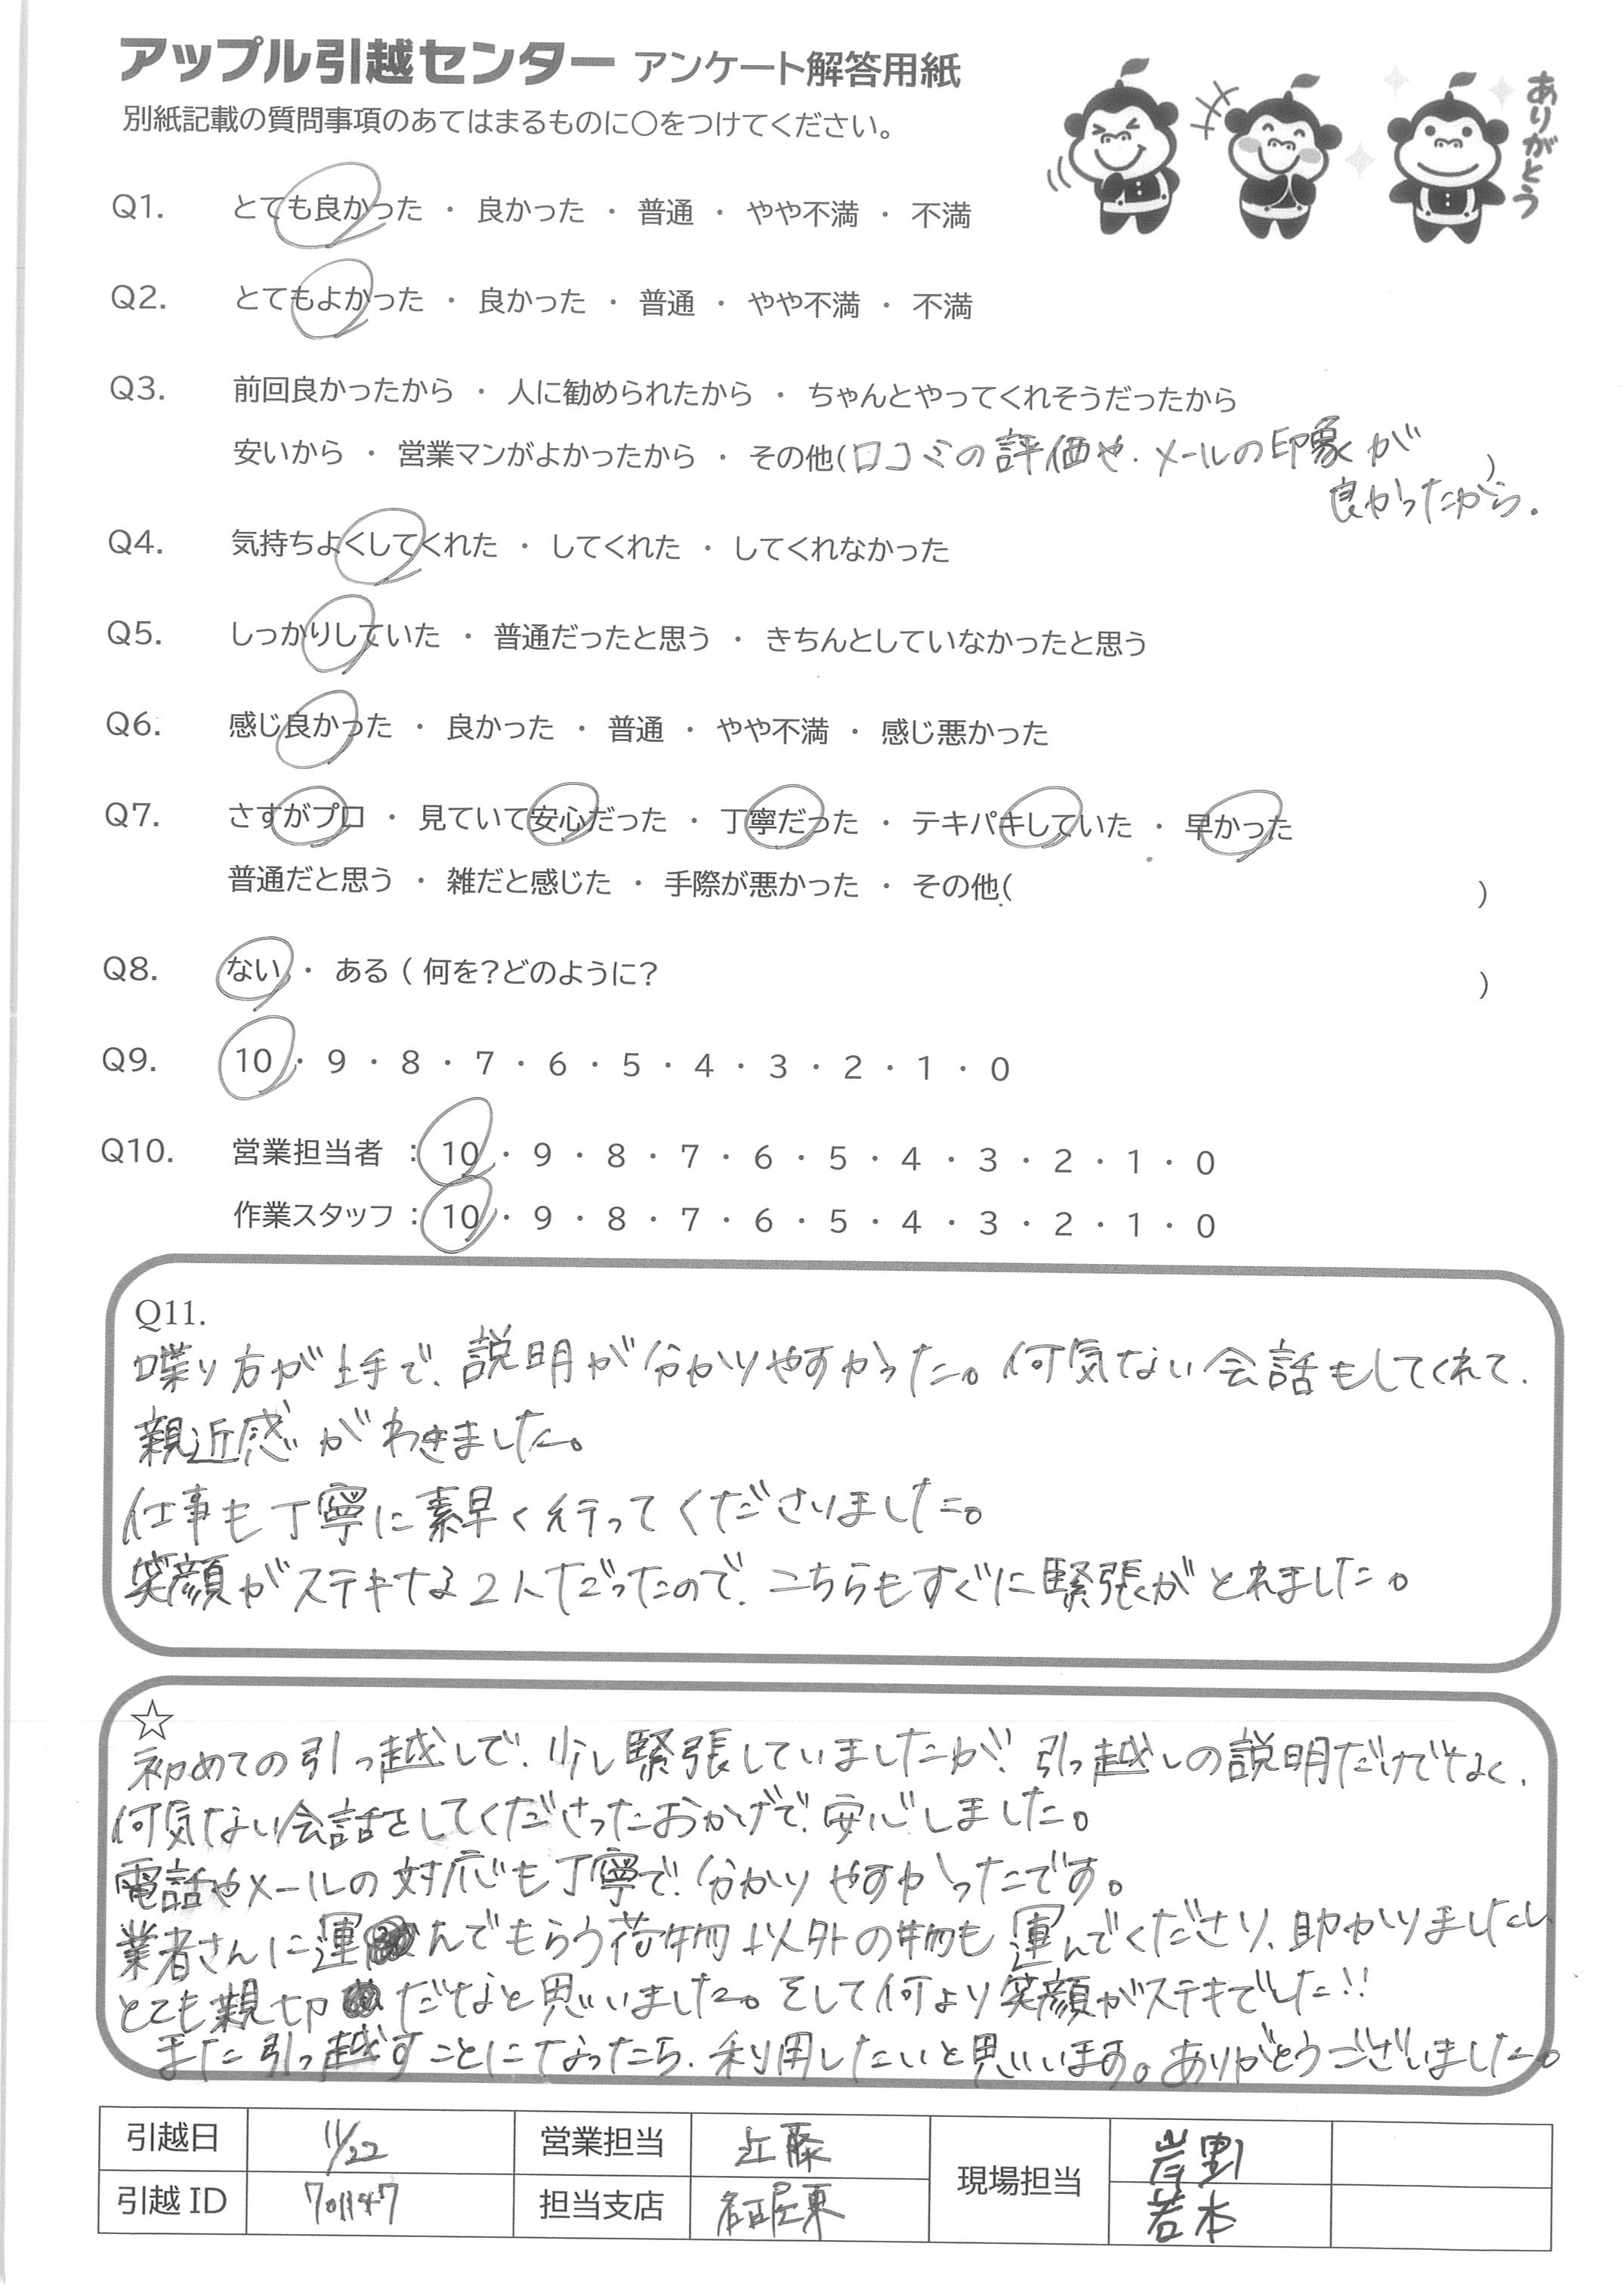 アップル引越センター アンケート解答用紙
別紙記載の質問事項のあてはまるものに○をつけてください。
ありがとう
Q1. とても良かった ・ 良かった ・ 普通 ・ やや不満 ・ 不満
Q2. とてもよかった ・ 良かった ・ 普通 ・ やや不満 ・ 不満
Q3. 前回良かったから ・ 人に勧められたから ・ ちゃんとやってくれそうだったから
安いから ・ 営業マンがよかったから ・ その他(口コミの評価や、メールの印象が
良かったから。)
Q4. 気持ちよくしてくれた ・ してくれた ・ してくれなかった
Q5. しっかりしていた ・ 普通だったと思う ・ きちんとしていなかったと思う
Q6. 感じ良かった ・ 良かった ・ 普通 ・ やや不満 ・ 感じ悪かった
Q7. さすがプロ ・ 見ていて安心だった ・ 丁寧だった ・ テキパキしていた ・ 早かった
普通だと思う ・ 雑だと感じた ・ 手際が悪かった ・ その他( )
Q8. ない ・ ある ( 何を?どのように? )
Q9. 10 ・ 9 ・ 8 ・ 7 ・ 6 ・ 5 ・ 4 ・ 3 ・ 2 ・ 1 ・ 0
Q10. 営業担当者 : 10 ・ 9 ・ 8 ・ 7 ・ 6 ・ 5 ・ 4 ・ 3 ・ 2 ・ 1 ・ 0
作業スタッフ : 10 ・ 9 ・ 8 ・ 7 ・ 6 ・ 5 ・ 4 ・ 3 ・ 2 ・ 1 ・ 0
Q11.
喋り方が上手で、説明が分かりやすかった。何気ない会話もしてくれて、
親近感がわきました。
仕事も丁寧に素早く行ってくださいました。
笑顔がステキな2人だったので、こちらもすぐに緊張がとれました。
☆
初めての引っ越しで、少し緊張していましたが、引っ越しの説明だけでなく、
何気ない会話をしてくださったおかげで、安心しました。
電話やメールの対応も丁寧で、分かりやすかったです。
業者さんに運んでもらう荷物以外の物も運んでくださり、助かりました
とても親切だなと思いました。そして何より笑顔がステキでした!!
また引っ越すことになったら、利用したいと思います。ありがとうございました。
引越日 11/22 営業担当 近藤 現場担当 岸野
引越ID 7011147 担当支店 名古屋東 若本